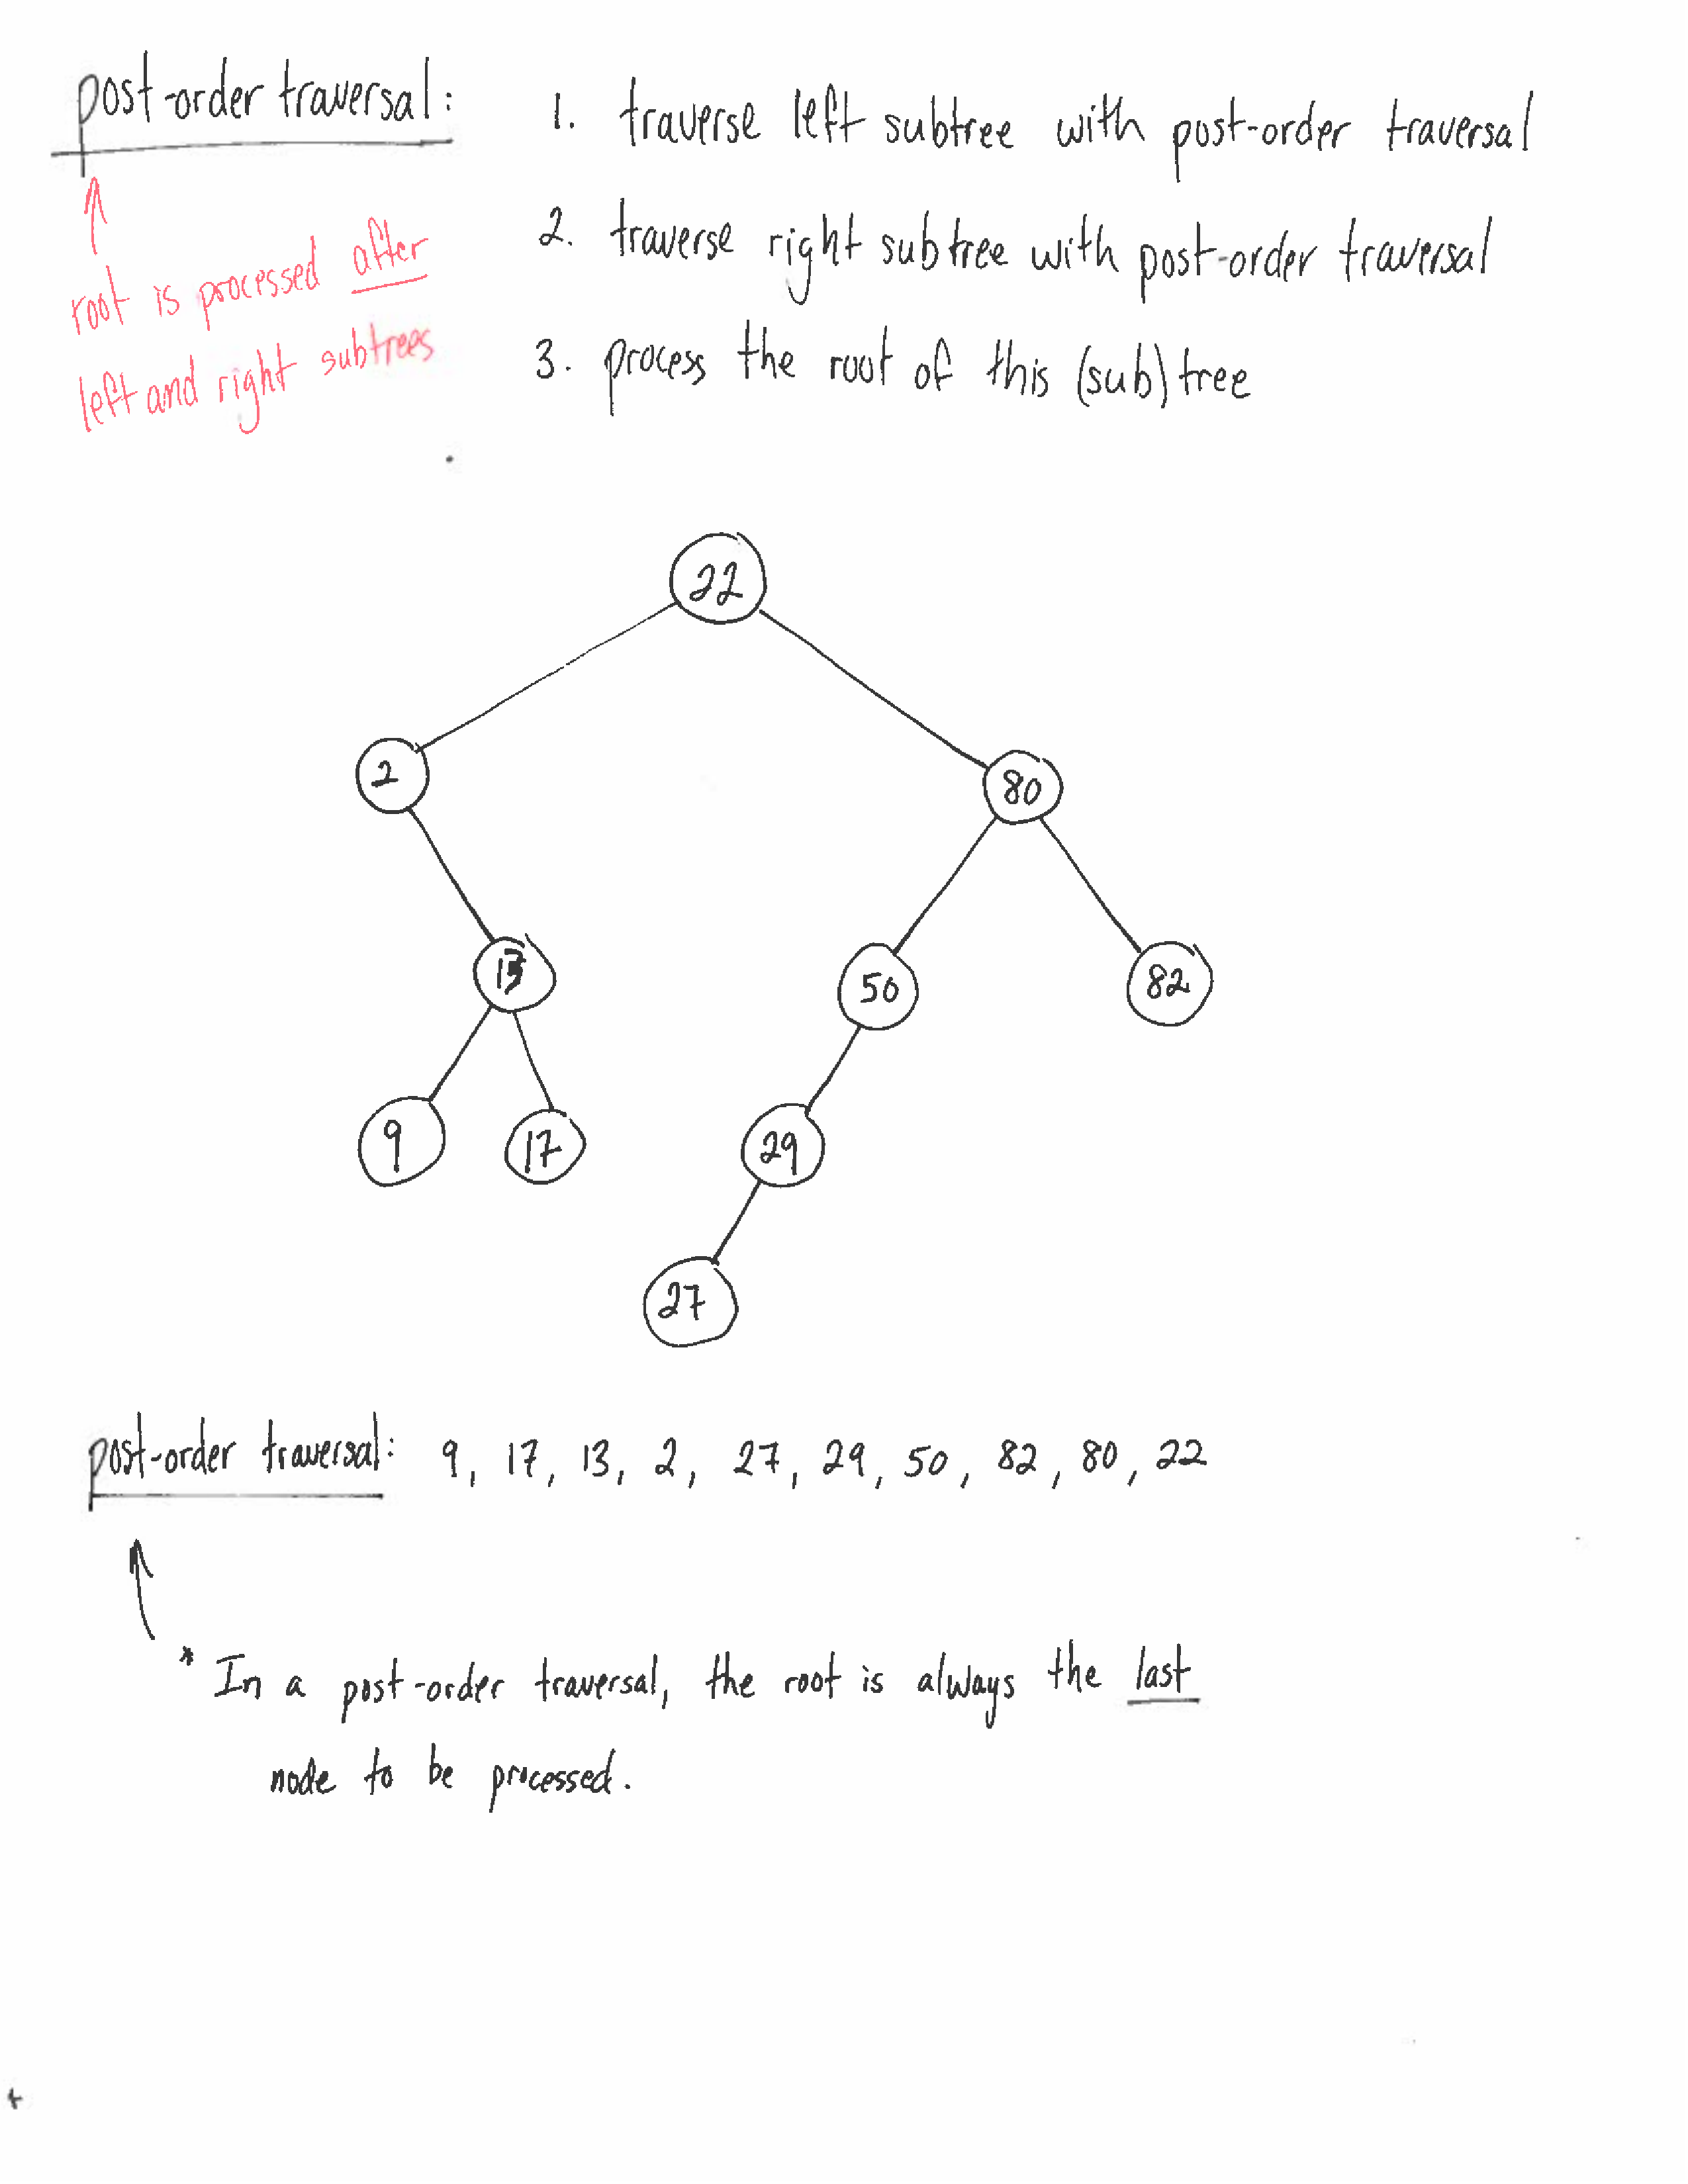 post-order traversal:
1. traverse left subtree with post-order traversal
2. traverse right subtree with post-order traversal
3. process the root of this (sub)tree
root is processed after
left and right subtrees
22
2
80
13
50
82
9
17
29
27
post-order traversal: 9, 17, 13, 2, 27, 29, 50, 82, 80, 22
* In a post-order traversal, the root is always the last
node to be processed.